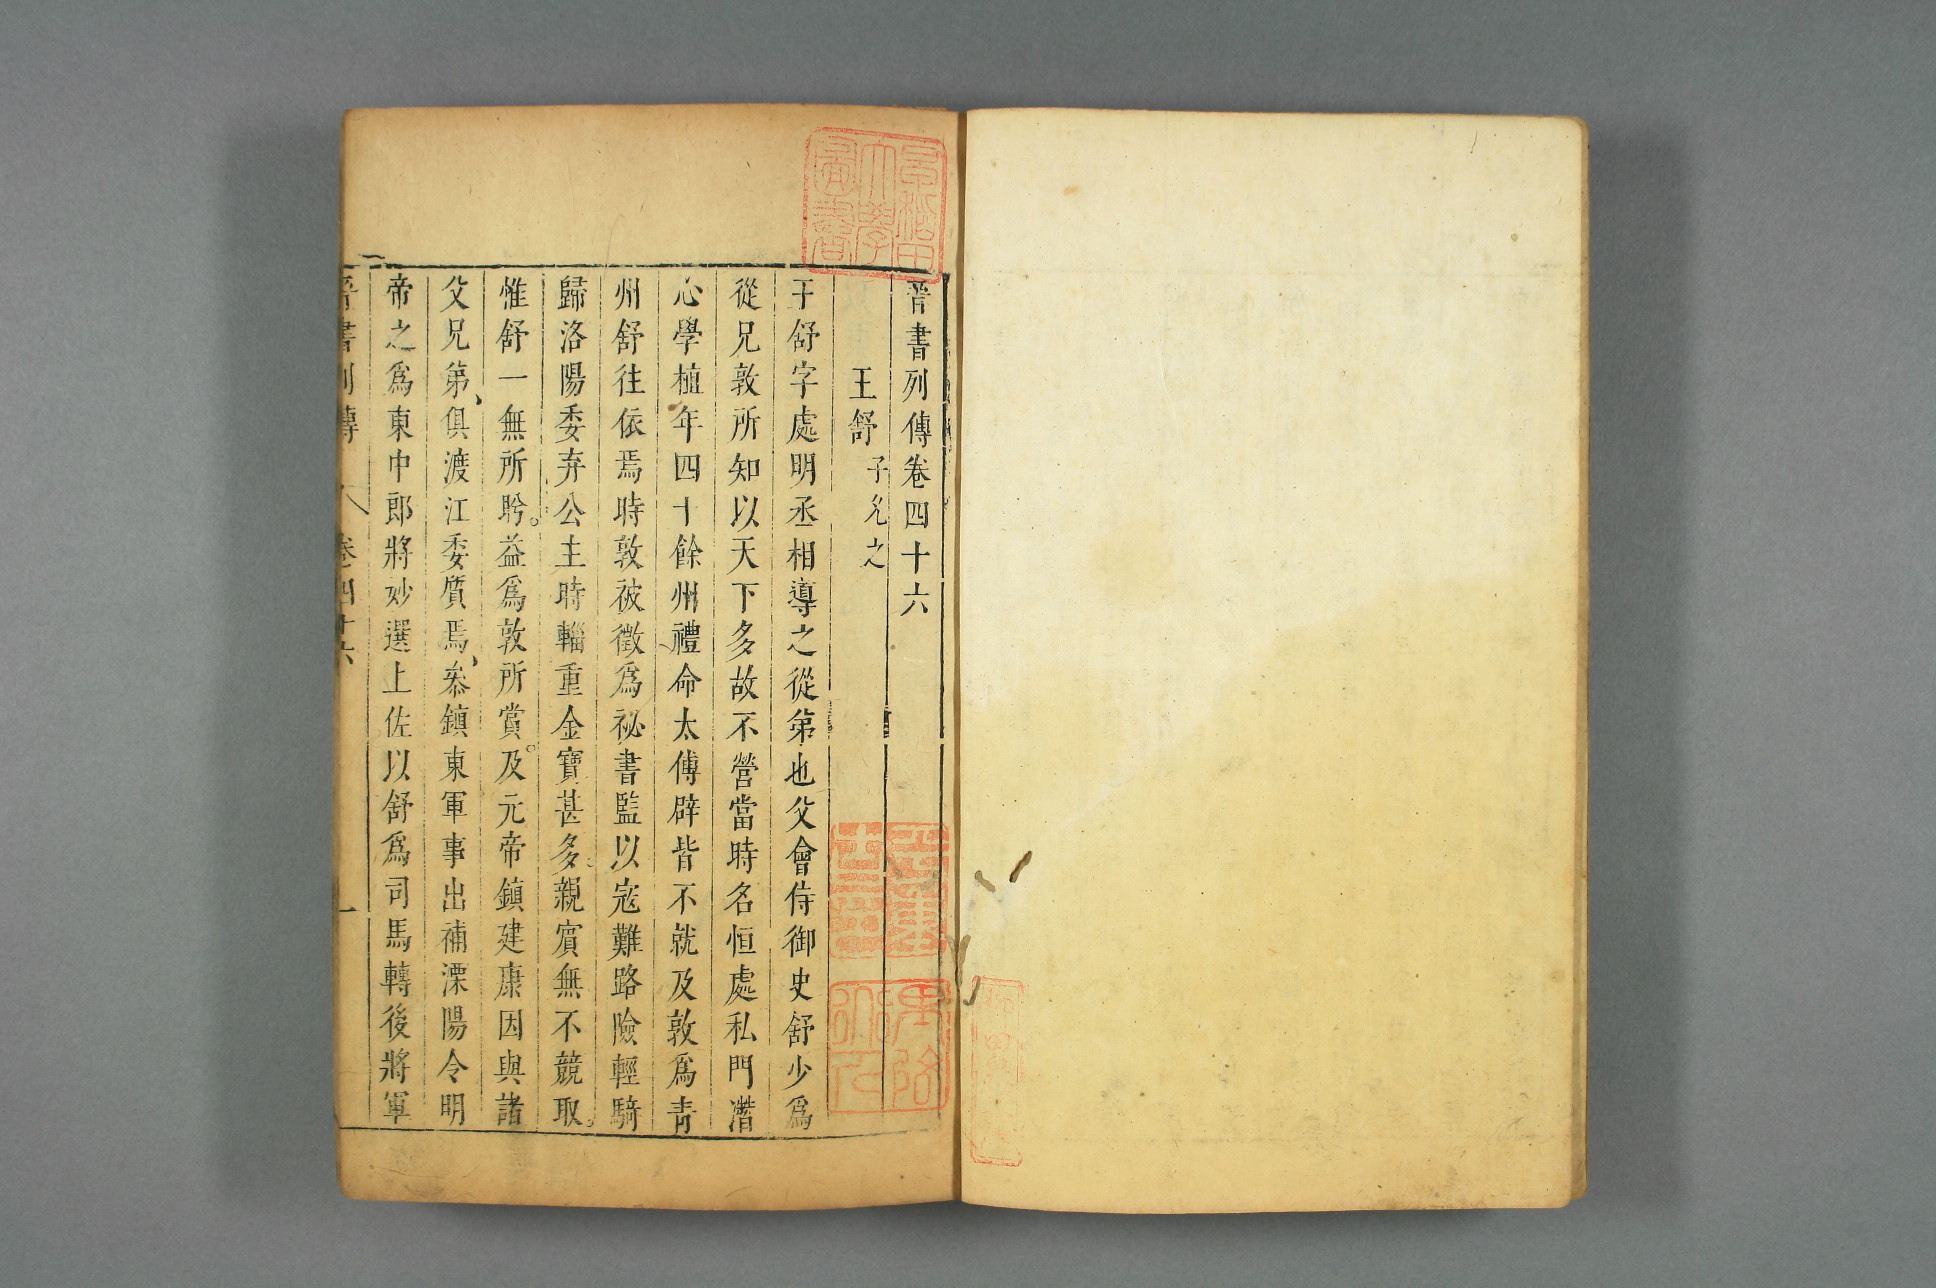 晉書列傳卷四十六
王舒 子允之
王舒字處明丞相導之從第也父會侍御史舒少爲
從兄敦所知以天下多故不營當時名恒處私門潛
心學植年四十餘州禮命太傅辟皆不就及敦爲青
州舒往依焉時敦被徵爲祕書監以寇難路險輕騎
歸洛陽委弃公主時輜重金寶甚多親賓無不競取
惟舒一無所眄益爲敦所賞及元帝鎮建康因與諸
父兄第俱渡江委質焉叅鎮東軍事出補溧陽令明
帝之爲東中郎將妙選上佐以舒爲司馬轉後將軍
晉書列傳 卷四十六 一
早稻田大學圖書